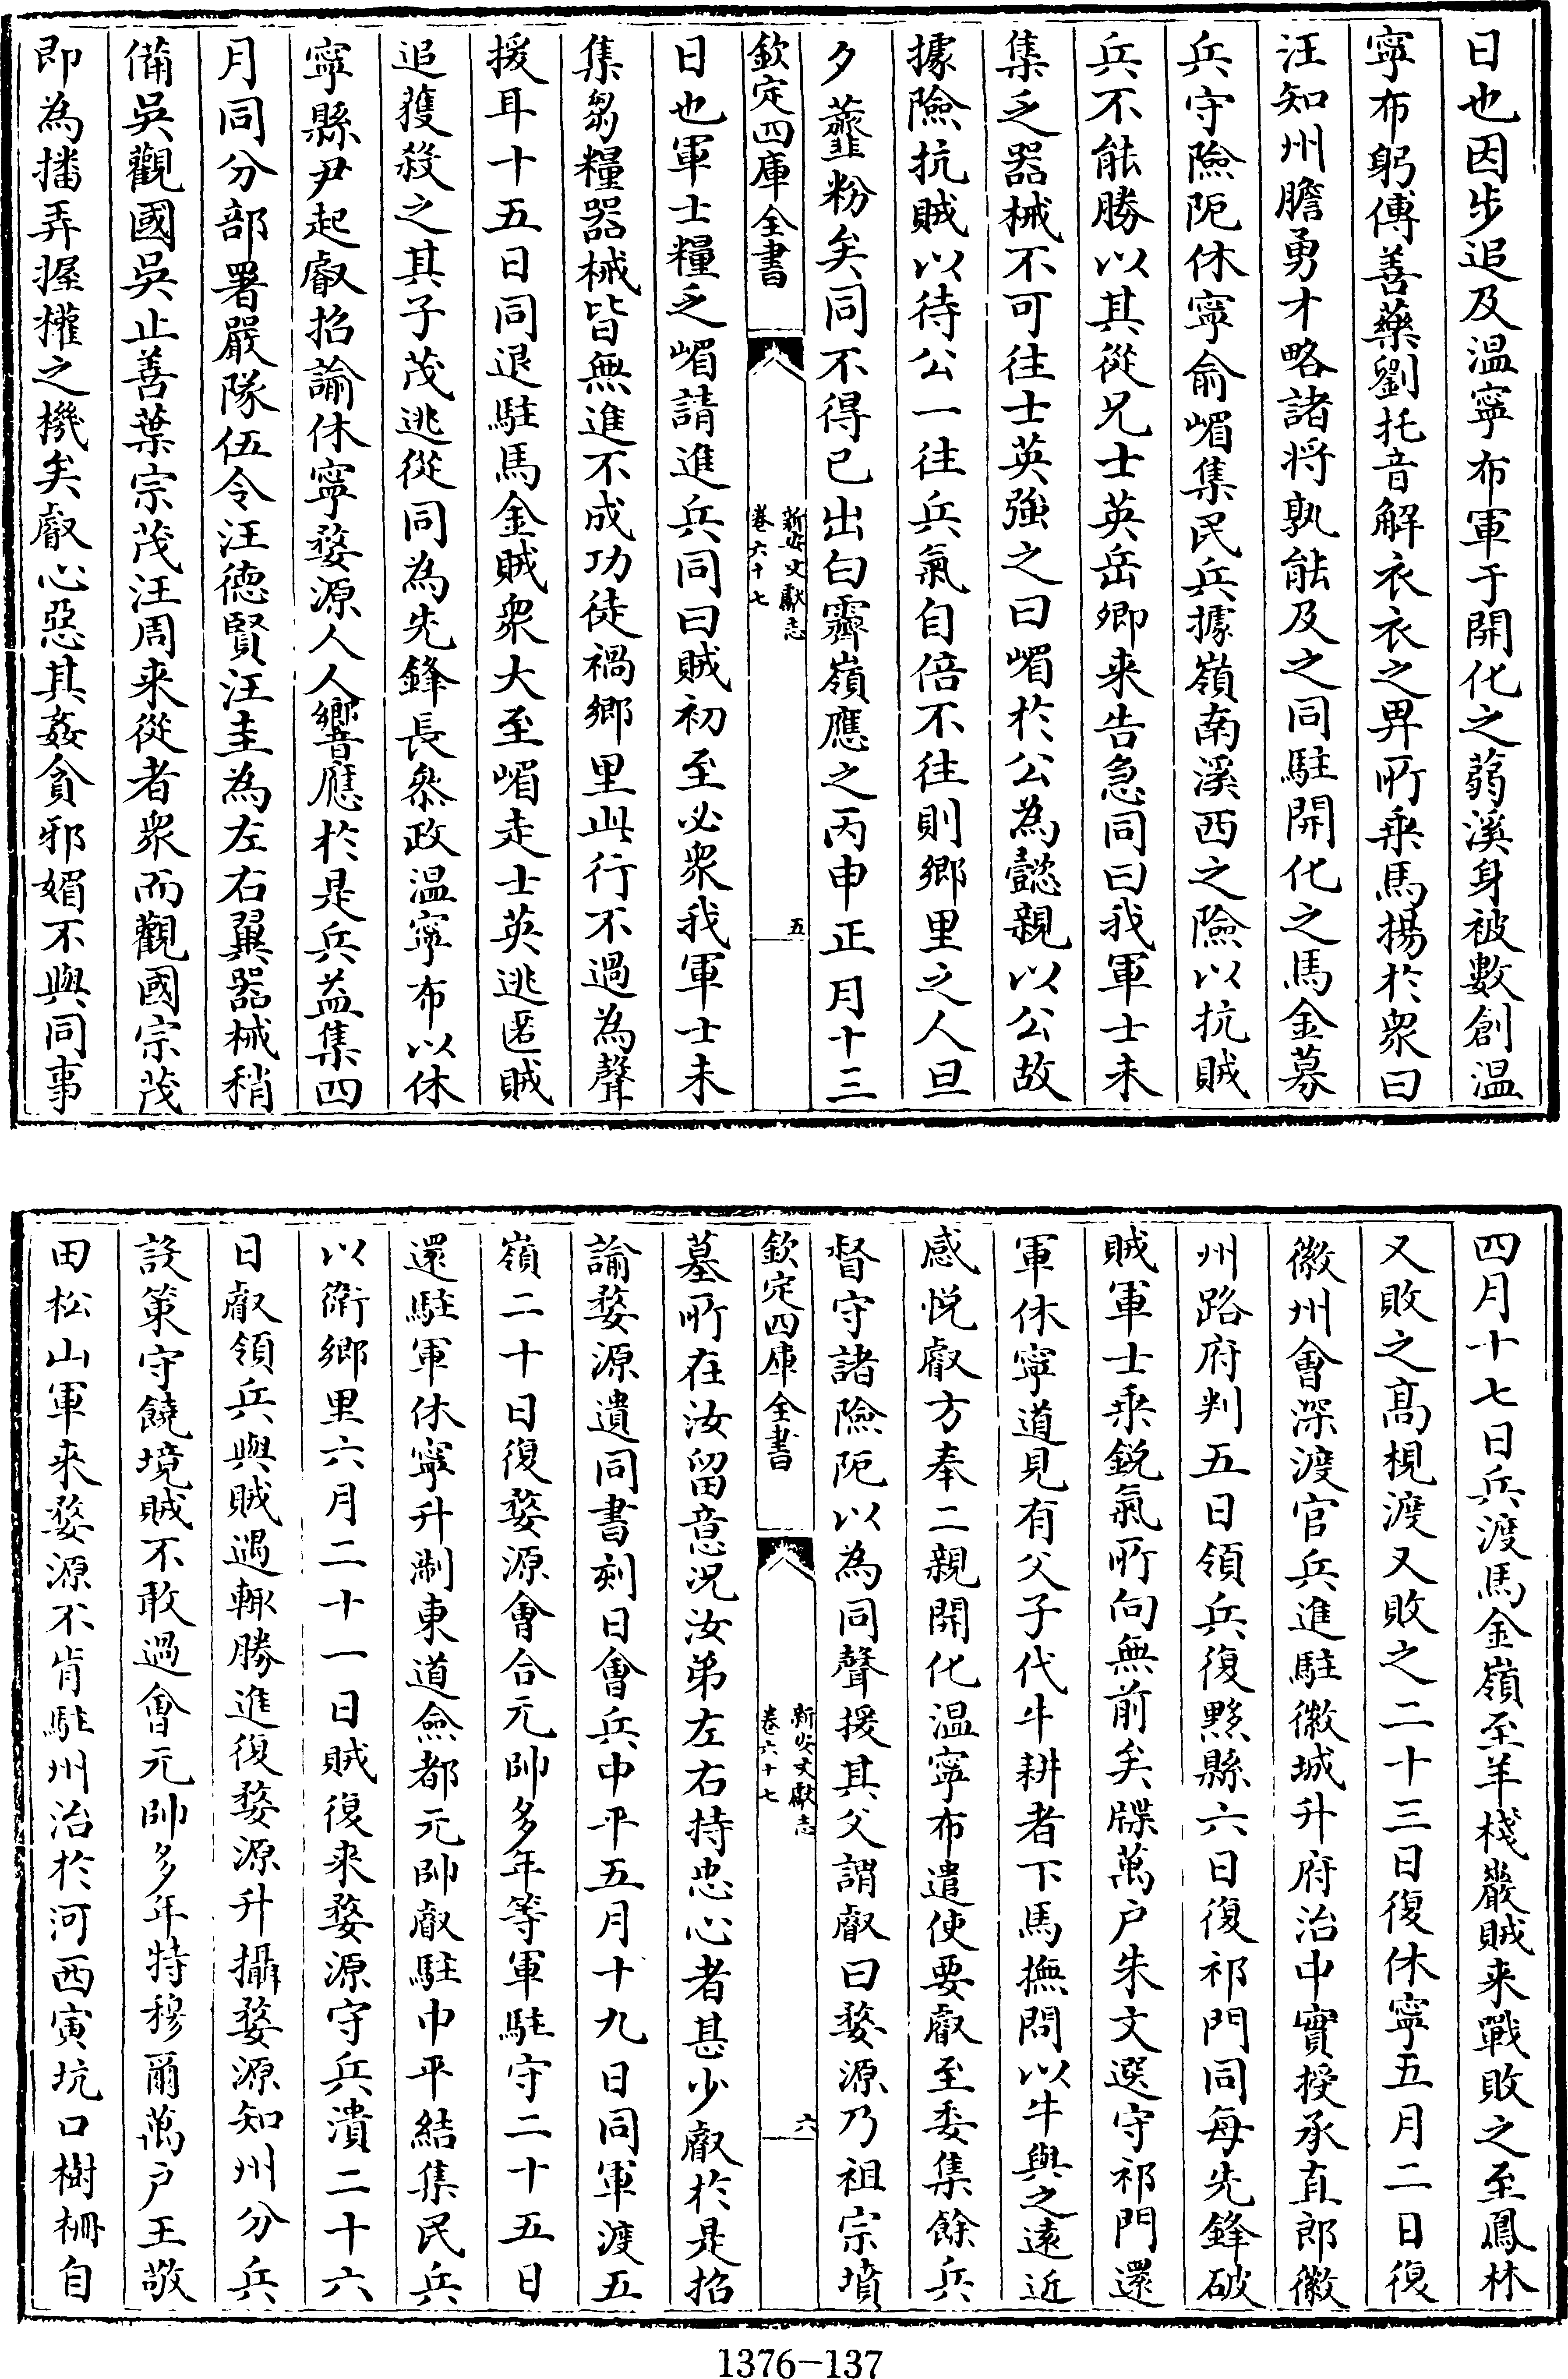 日也因步追及温寧布軍于開化之蒻溪身被數創温
寧布躬傅善藥劉托音解衣衣之畀所乗馬揚於衆曰
汪知州膽勇才略諸將孰能及之同駐開化之馬金募
兵守險阨休寧俞嵋集民兵據嶺南溪西之險以抗賊
兵不能勝以其從兄士英岳卿来告急同曰我軍士未
集乏器械不可往士英強之曰嵋於公為懿親以公故
據險抗賊以待公一往兵氣自倍不往則鄉里之人旦
夕虀粉矣同不得已出白霽嶺應之丙申正月十三
欽定四庫全書
新安文獻志
卷六十七
五
日也軍士糧乏嵋請進兵同曰賊初至必衆我軍士未
集芻糧器械皆無進不成功徒禍鄉里此行不過為聲
援耳十五日同退駐馬金賊衆大至嵋走士英逃匿賊
追獲殺之其子茂逃從同為先鋒長叅政温寧布以休
寧縣尹起叡招諭休寧婺源人人響應於是兵益集四
月同分部署嚴隊伍令汪德賢汪圭為左右翼器械稍
備吳觀國吳止善葉宗茂汪周来從者衆而觀國宗茂
即為播弄握權之機矣叡心惡其姦貪邪媚不與同事
四月十七日兵渡馬金嶺至羊棧巖賊来戰敗之至鳳林
又敗之髙梘渡又敗之二十三日復休寧五月二日復
徽州會深渡官兵進駐徽城升府治中實授承直郎徽
州路府判五日領兵復黟縣六日復祁門同每先鋒破
賊軍士乗銳氣所向無前矣牒萬户朱文選守祁門還
軍休寧道見有父子代牛耕者下馬撫問以牛與之遠近
感悅叡方奉二親開化温寧布遣使要叡至委集餘兵
督守諸險阨以為同聲援其父謂叡曰婺源乃祖宗墳
欽定四庫全書
新安文獻志
卷六十七
六
墓所在汝留意況汝弟左右持忠心者甚少叡於是招
諭婺源遺同書刻日會兵中平五月十九日同軍渡五
嶺二十日復婺源會合元帥多年等軍駐守二十五日
還駐軍休寧升淛東道僉都元帥叡駐中平結集民兵
以衛鄉里六月二十一日賊復来婺源守兵潰二十六
日叡領兵與賊遇輒勝進復婺源升攝婺源知州分兵
設策守饒境賊不敢過會元帥多年特穆爾萬户王敬
田松山軍來婺源不肯駐州治於河西寅坑口樹栅自
1376-137